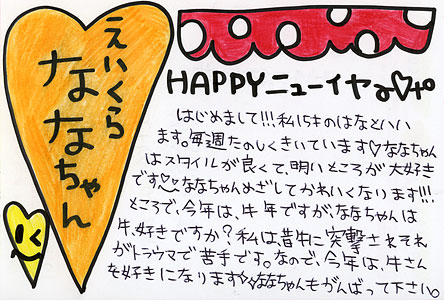 えいくら
ななちゃん
HAPPYニューイヤー♡
はじめまして!!!私15才のはなといい
ます。毎週たのしくきいています♡ななちゃん
はスタイルが良くて、明いところが大好き
です♡ななちゃんめざしてかわいくなります!!!
ところで、今年は、牛年ですが、ななちゃんは
牛、好きですか?私は、昔牛に突撃されそれ
がトラウマで苦手です。なので、今年は、牛さん
を好きになります☆ななちゃんもがんばって下さい。